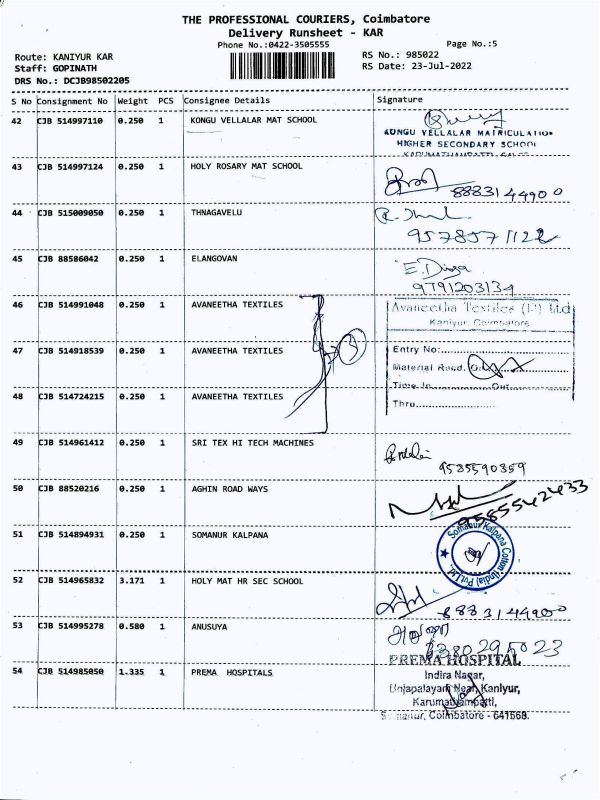 THE PROFESSIONAL COURIERS, Coimbatore
Delivery Runsheet - KAR
Phone No.:0422-3505555
Page No.:5
Route: KANIYUR KAR
Staff: GOPINATH
DRS No.: DCJB98502205
RS No.: 985022
RS Date: 23-Jul-2022
S No Consignment No Weight PCS Consignee Details Signature
42 CJB 514997110 0.250 1 KONGU VELLALAR MAT SCHOOL
KONGU VELLALAR MATRICULATION
HIGHER SECONDARY SCHOOL
43 CJB 514997124 0.250 1 HOLY ROSARY MAT SCHOOL
8883144900
44 CJB 515009050 0.250 1 THNAGAVELU
9578571122
45 CJB 88586042 0.250 1 ELANGOVAN
E. Divya
9791203134
46 CJB 514991048 0.250 1 AVANEETHA TEXTILES
Avaneetha Textiles (P) Ltd
Kaniyur, Coimbatore
47 CJB 514918539 0.250 1 AVANEETHA TEXTILES
Entry No:
Material Recd.
48 CJB 514724215 0.250 1 AVANEETHA TEXTILES
Time In Out
Thru
49 CJB 514961412 0.250 1 SRI TEX HI TECH MACHINES
9585590859
50 CJB 88520216 0.250 1 AGHIN ROAD WAYS
9585542433
51 CJB 514894931 0.250 1 SOMANUR KALPANA
Somanur Kalpana Cotton (India) Pvt. Ltd.
52 CJB 514965832 3.171 1 HOLY MAT HR SEC SCHOOL
8883144900
53 CJB 514995278 0.580 1 ANUSUYA
6380295023
54 CJB 514985050 1.335 1 PREMA HOSPITALS
PREMA HOSPITAL
Indira Nagar,
Unjapalayam Near, Kaniyur,
Karumathampatti,
Somanur, Coimbatore - 641668.